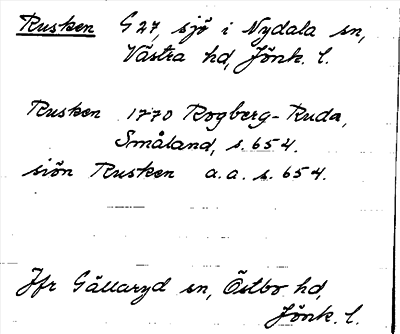 Rusken G 27, sjö i Nydala sn,
Västra hd, Jönk. l.
Rusken 1770 Rogberg-Ruda,
Småland, s. 654.
siön Rusken a.a. s. 654.
Jfr Gällaryd sn, Östbo hd,
Jönk. l.